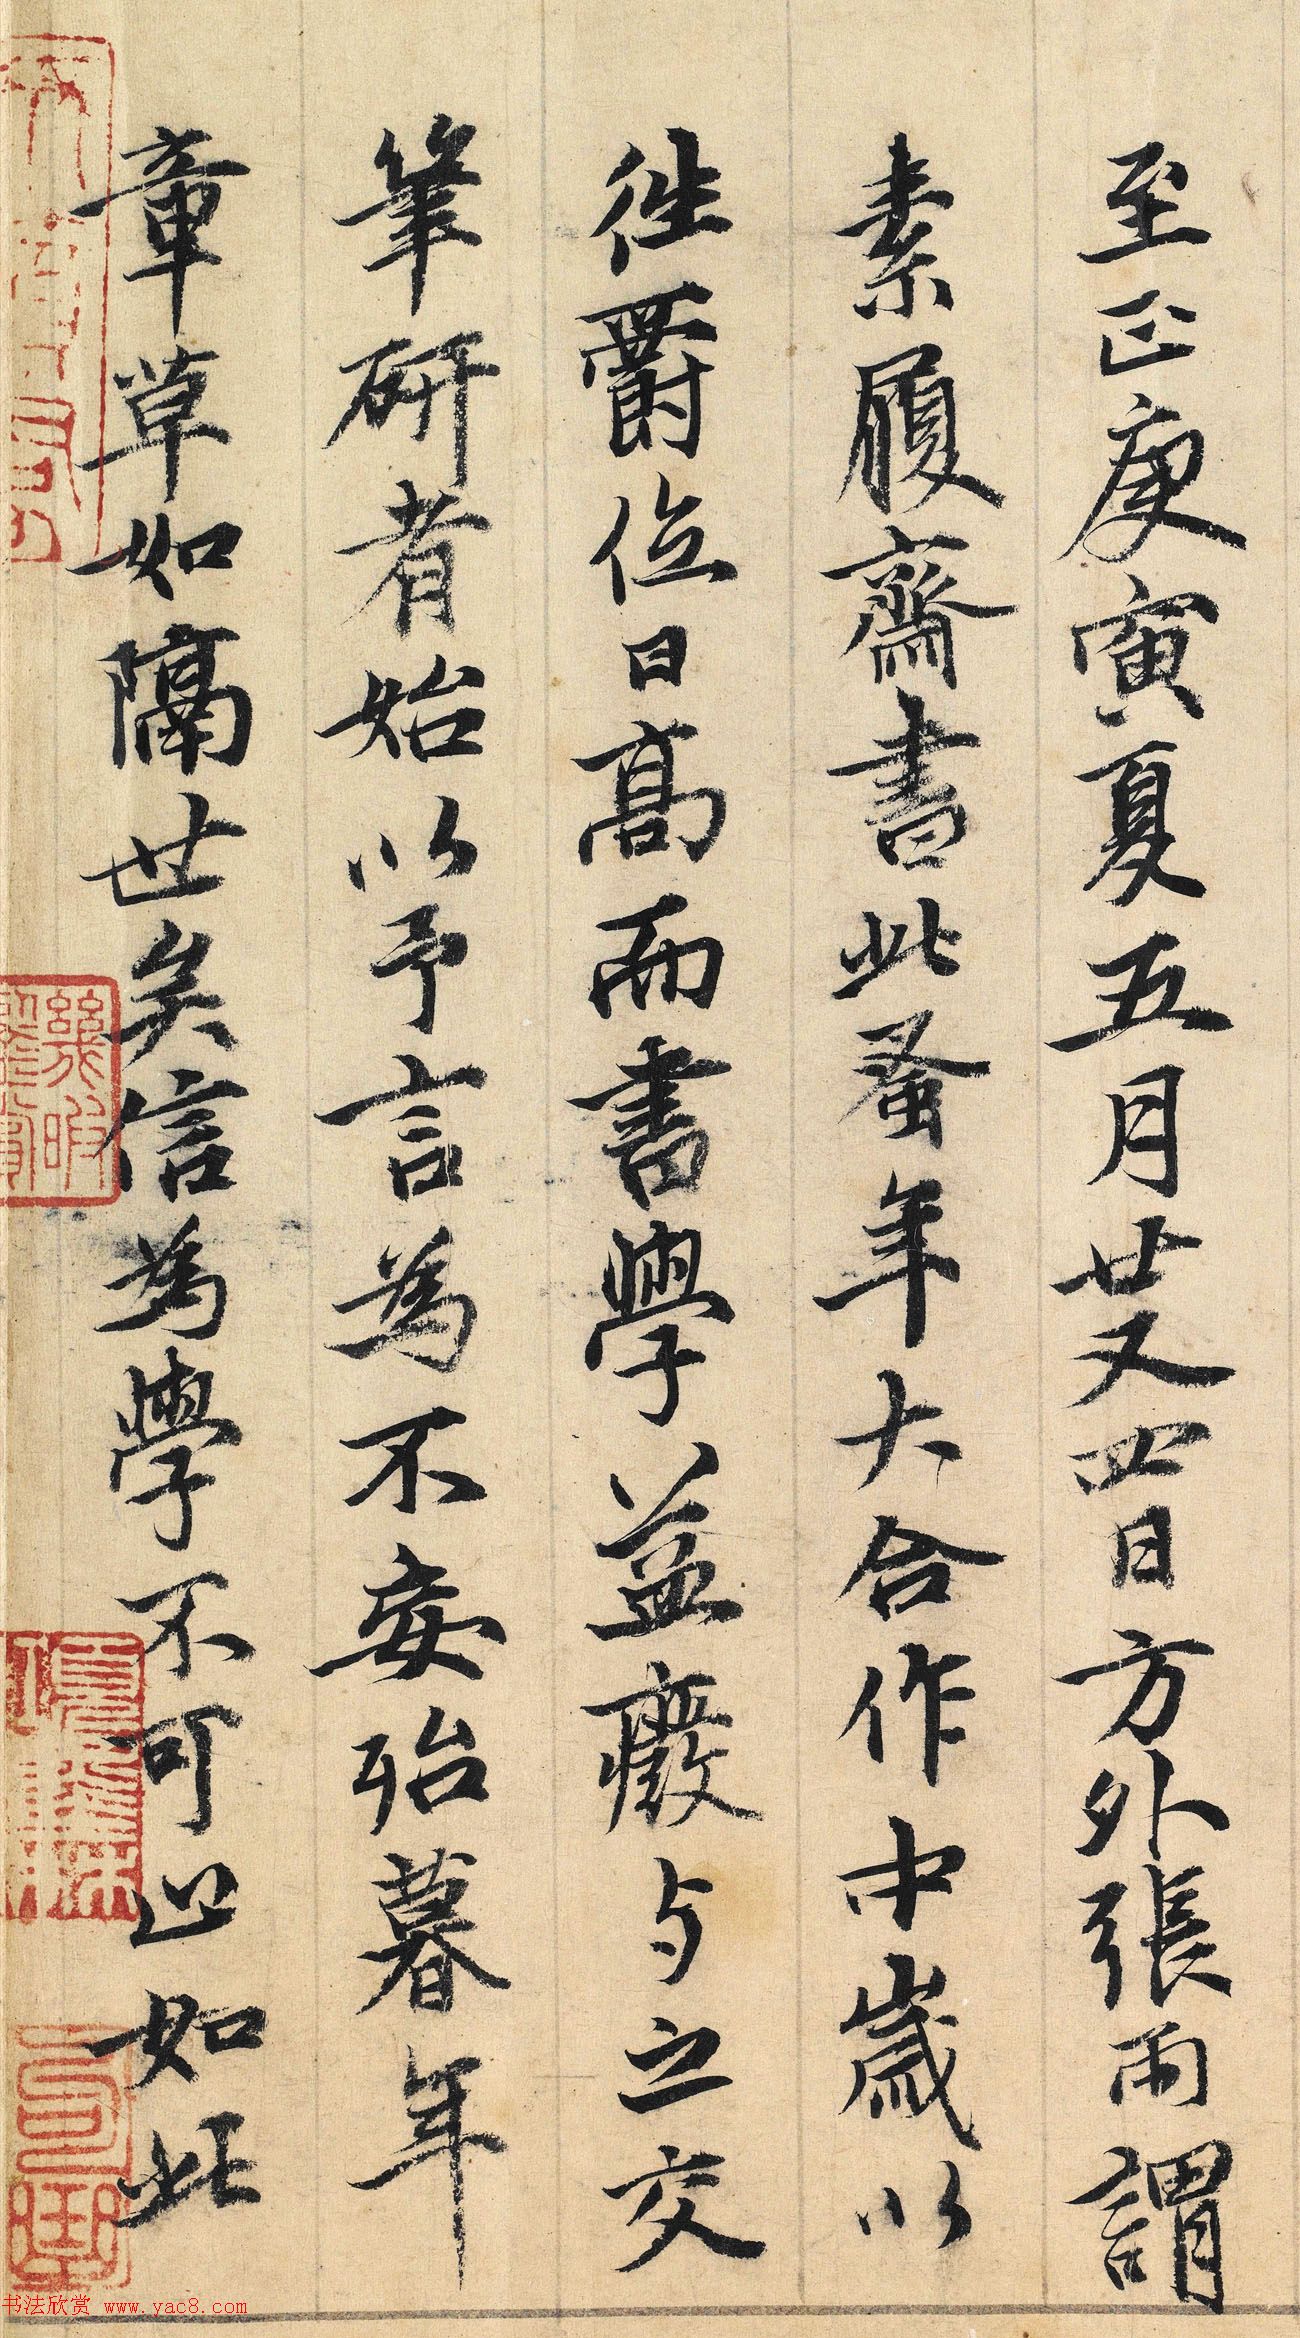 至正庚寅夏五月廿又四日方外張雨謂
素履齋書此蚤年大合作中歲以
徃爵位日高而書學益癈与之交
筆研者始以予言為不妄殆暮年
章草如隔世矣信為學不可止如此
书法欣赏 www.yac8.com